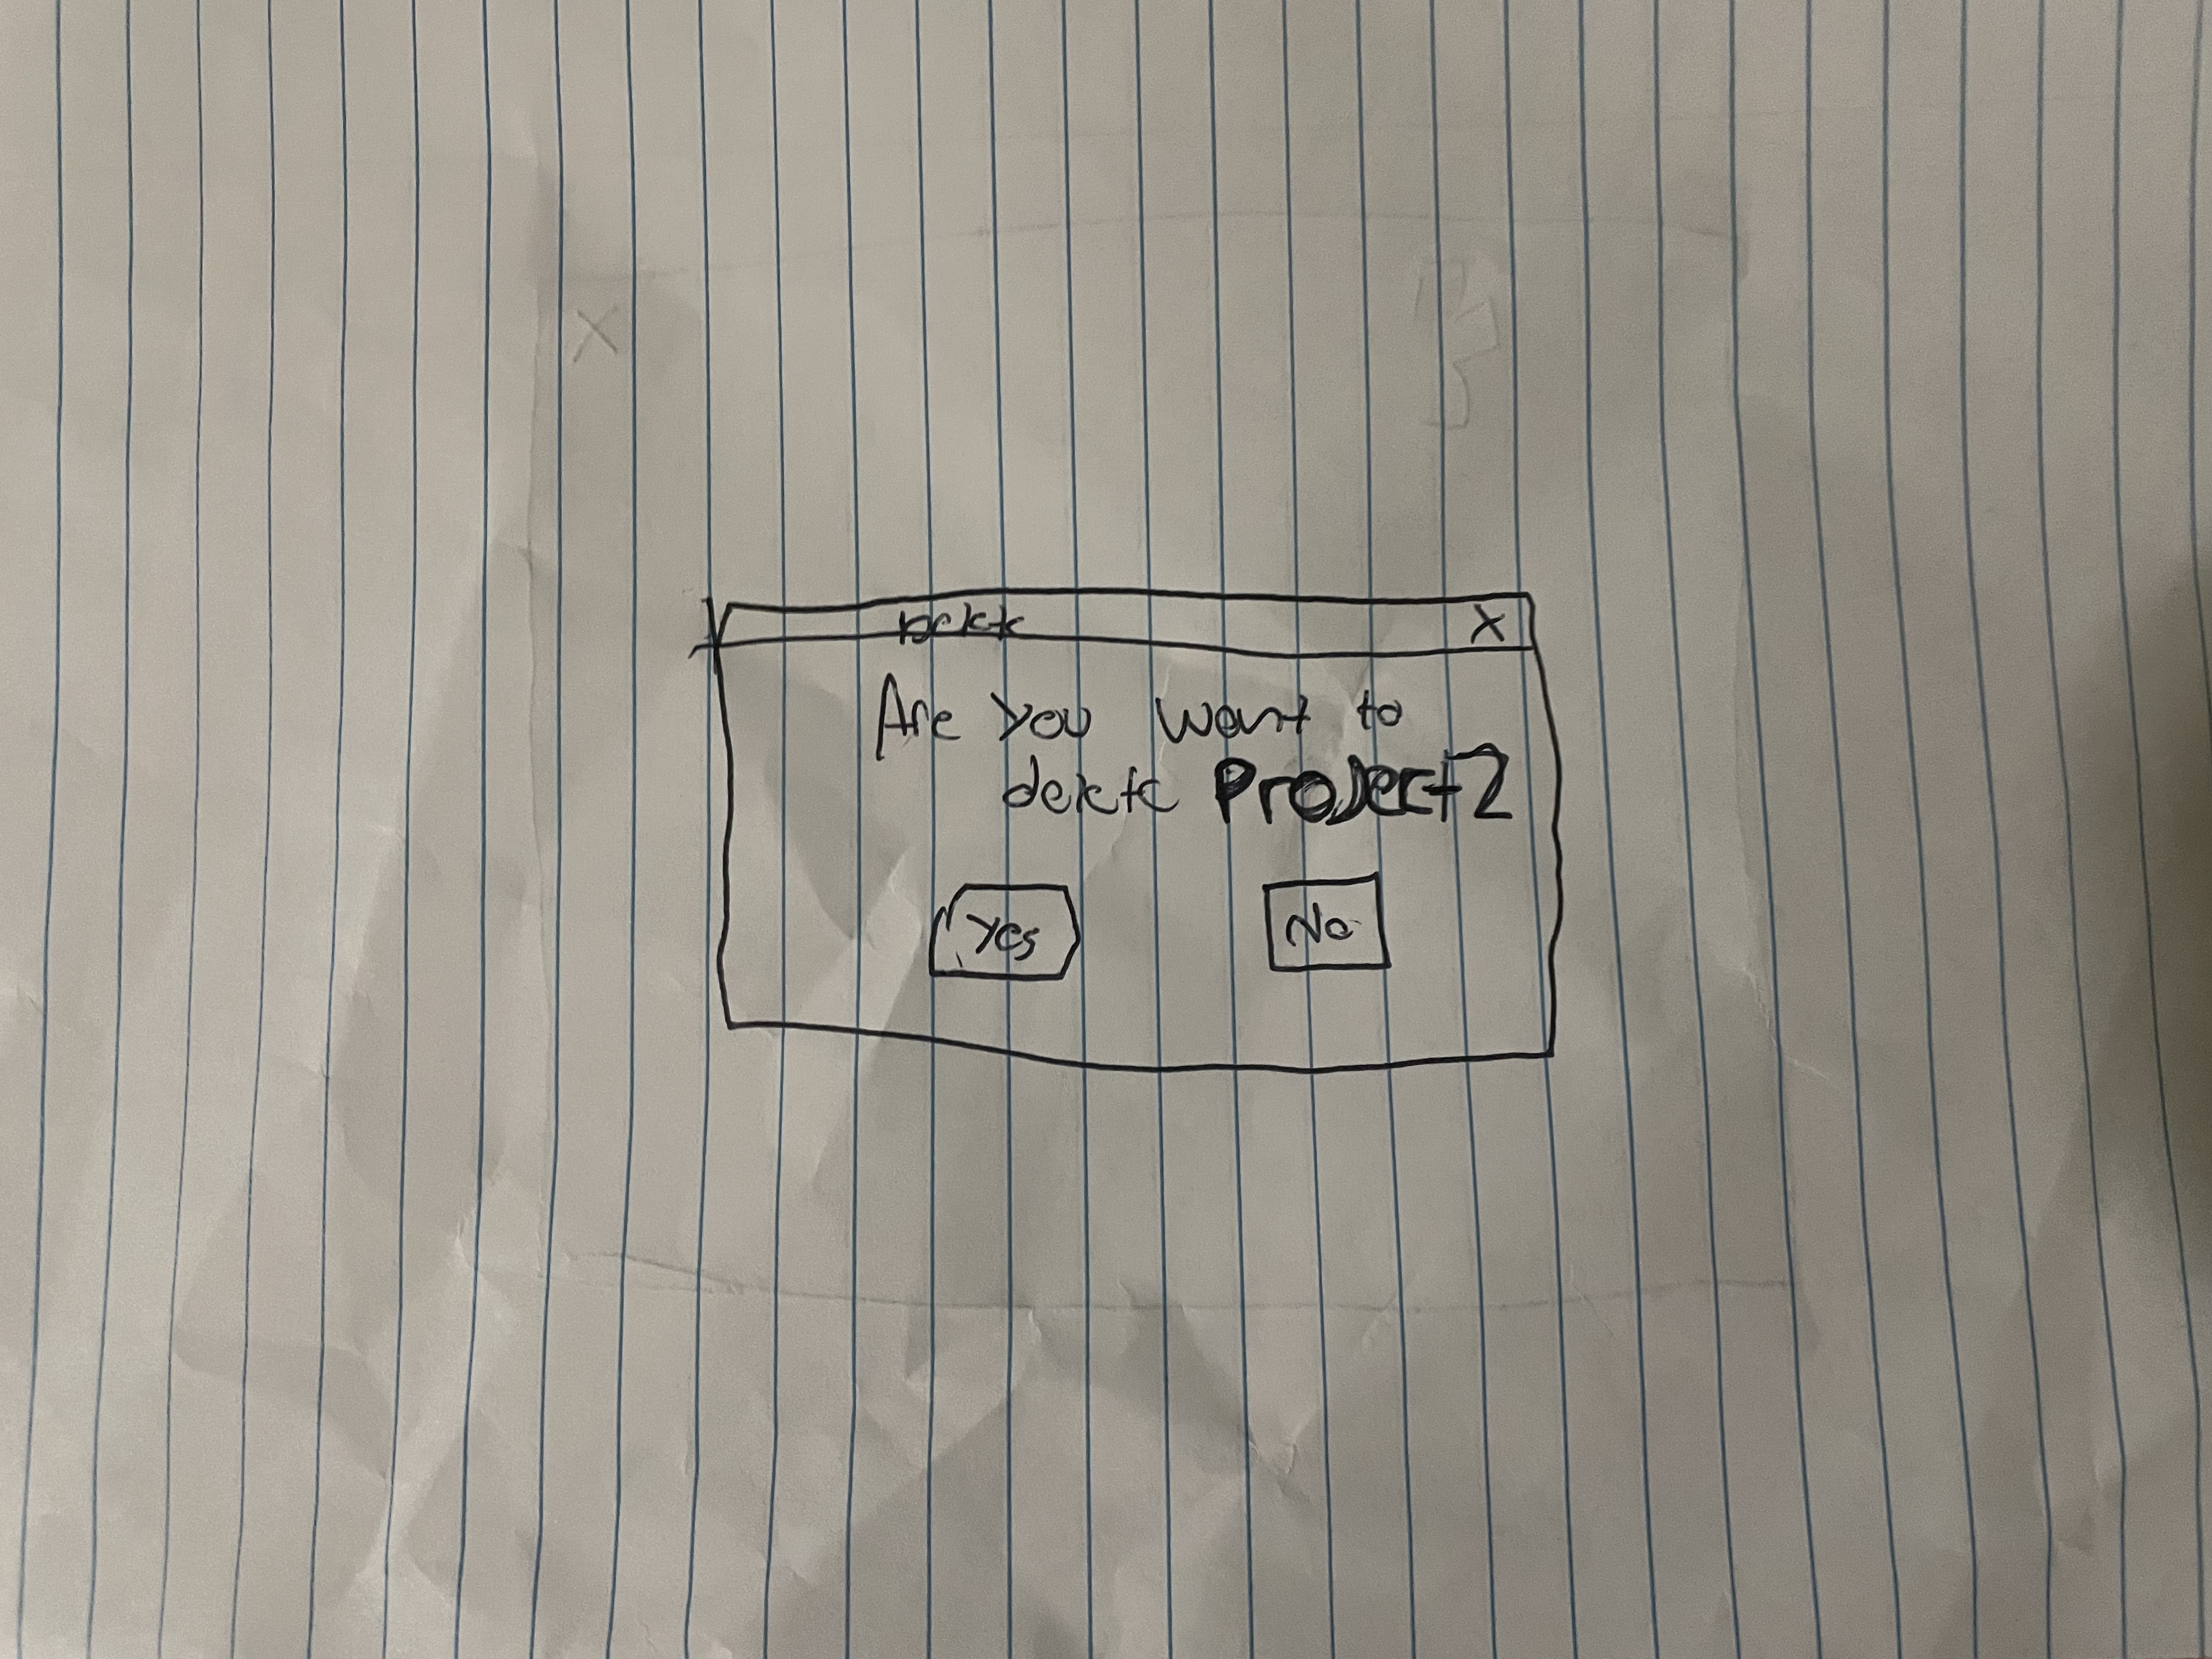 Delete X
Are you want to
delete Project2
Yes No